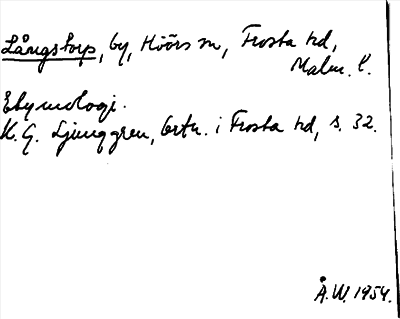 Långstorp, by, Höörs sn, Frosta hd,
Malm. l.
Etymologi.
K. G. Ljunggren, Ortn. i Frosta hd, s. 32.
Å.W. 1954.